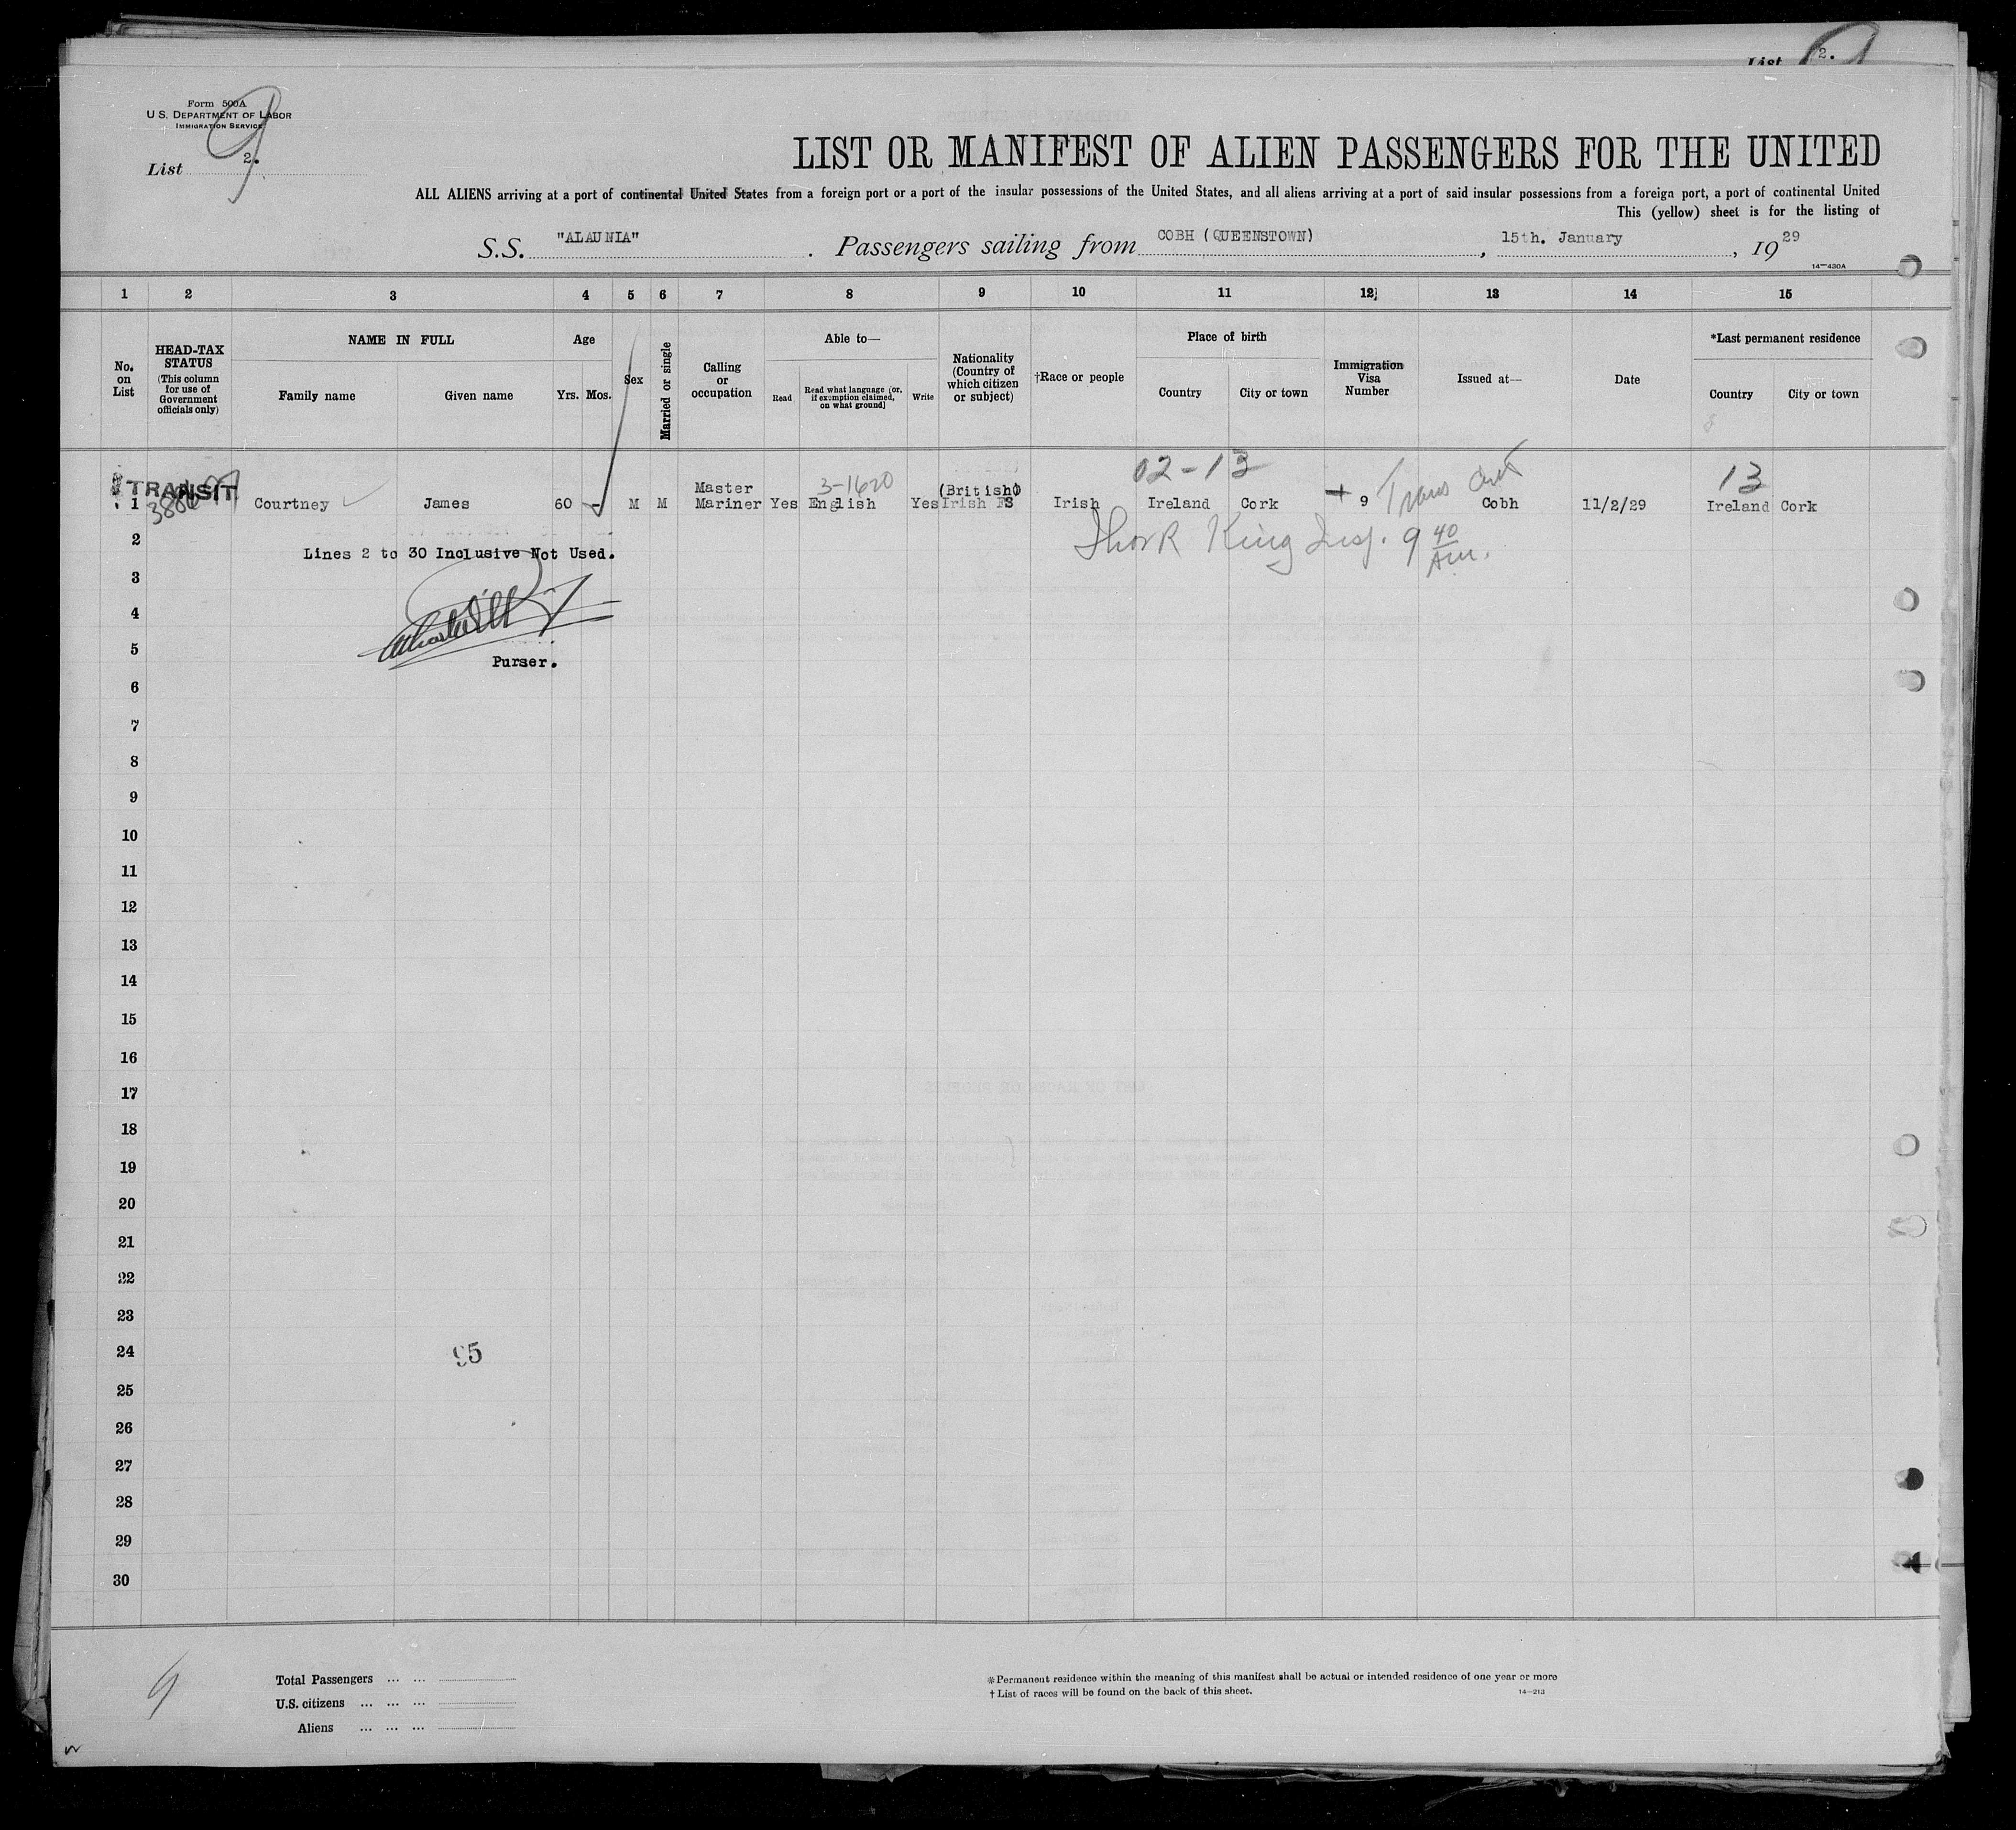 List 2.
Form 500A
U.S. DEPARTMENT OF LABOR
IMMIGRATION SERVICE
List 2. 9
LIST OR MANIFEST OF ALIEN PASSENGERS FOR THE UNITED
ALL ALIENS arriving at a port of continental United States from a foreign port or a port of the insular possessions of the United States, and all aliens arriving at a port of said insular possessions from a foreign port, a port of continental United
This (yellow) sheet is for the listing of
S.S. "ALAUNIA" . Passengers sailing from COBH (QUEENSTOWN), 15th. January, 1929
14—430A
1 2 3 4 5 6 7 8 9 10 11 12 13 14 15
No. on List
HEAD-TAX STATUS (This column for use of Government officials only)
NAME IN FULL
Family name Given name
Age
Yrs. Mos.
Sex
Married or single
Calling or occupation
Able to—
Read
Read what language [or, if exemption claimed, on what ground]
Write
Nationality (Country of which citizen or subject)
†Race or people
Place of birth
Country City or town
Immigration Visa Number
Issued at—
Date
*Last permanent residence
Country City or town
02-13
13
TRANSIT
3-1620
Master (British)
1 Courtney James 60 - M M Mariner Yes English Yes Irish FS Irish Ireland Cork 9 Trans Cert Cobh 11/2/29 Ireland Cork
2
King Insp. 9 40 Am.
Lines 2 to 30 Inclusive Not Used.
3
4
5
Purser.
6
7
8
9
10
11
12
13
14
15
16
17
18
19
20
21
22
23
24
95
25
26
27
28
29
30
9
Total Passengers ... ...
U.S. citizens ... ... ...
Aliens ... ... ...
*Permanent residence within the meaning of this manifest shall be actual or intended residence of one year or more
†List of races will be found on the back of this sheet.
14—213